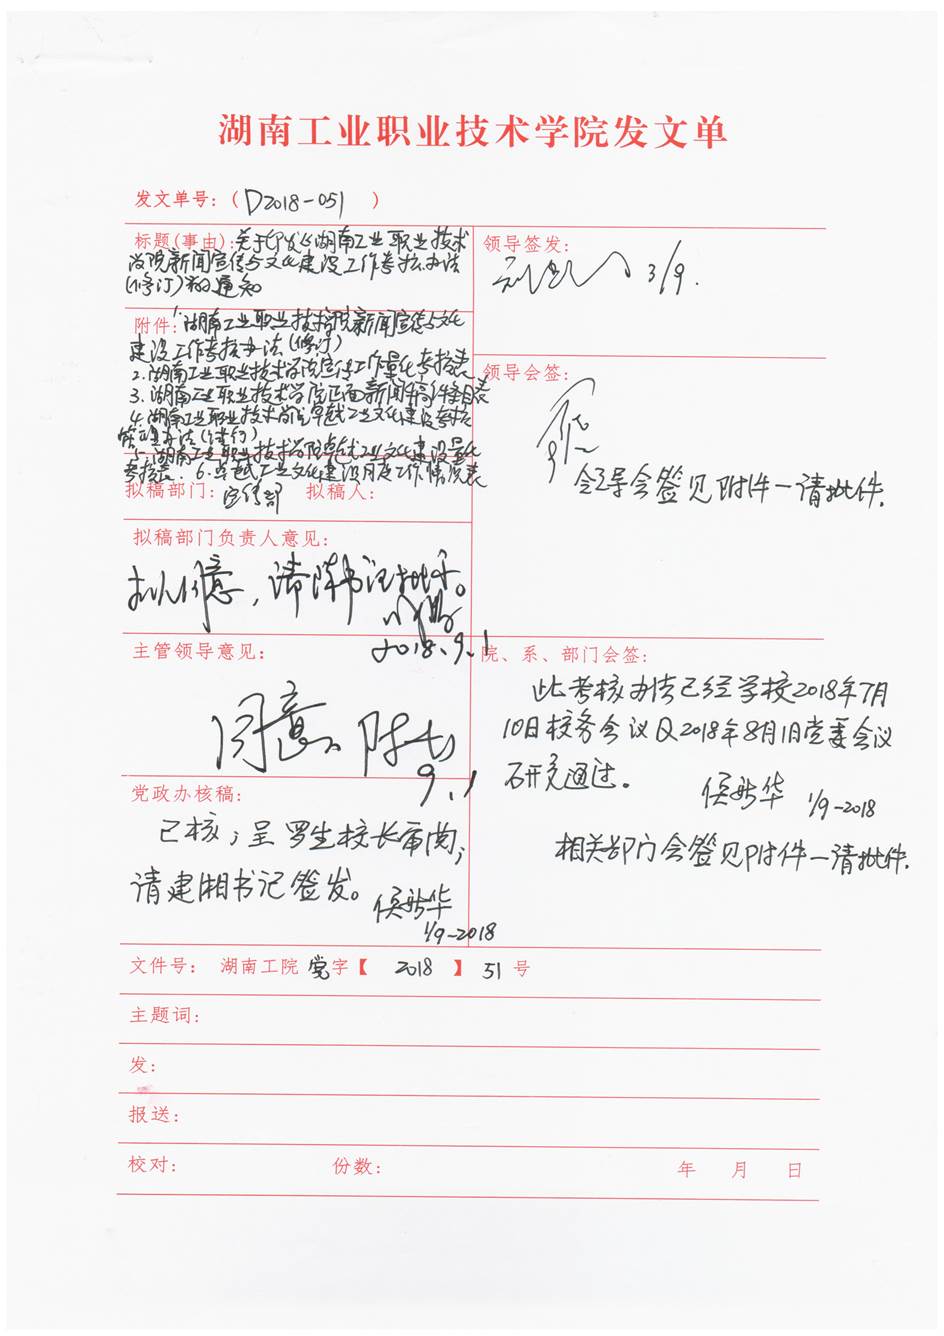 湖南工业职业技术学院发文单
发文单号：（D2018-051）
标题(事由)：关于印发《湖南工业职业技术
学院新闻宣传与文化建设工作考核办法
(修订)》的通知
领导签发：
3/9.
附件：1.湖南工业职业技术学院新闻宣传与文化
建设工作考核办法(修订)
2.湖南工业职业技术学院宣传工作量化考核表
3.湖南工业职业技术学院正面新闻稿件登目表
4.湖南工业职业技术学院卓越工业文化建设考核
管理办法(试行)
5.湖南工业职业技术学院卓越工业文化建设量化
考核表. 6.卓越工业文化建设月度工作情况表
领导会签：
领导会签见附件一请批件.
拟稿部门：宣传部 拟稿人：
拟稿部门负责人意见：
拟同意，请陈书记批示。
2018.9.1
主管领导意见：
同意。陈
9.1
院、系、部门会签：
此考核办法已经学校2018年7月
10日校务会议及2018年8月1日党委会议
研究通过。
侯 华 1/9-2018
相关部门会签见附件一请批件.
党政办核稿：
已核；呈罗生校长审阅；
请建湘书记签发。
侯 华
1/9-2018
文件号： 湖南工院 党 字【 2018 】 51 号
主题词：
发：
报送：
校对： 份数： 年 月 日